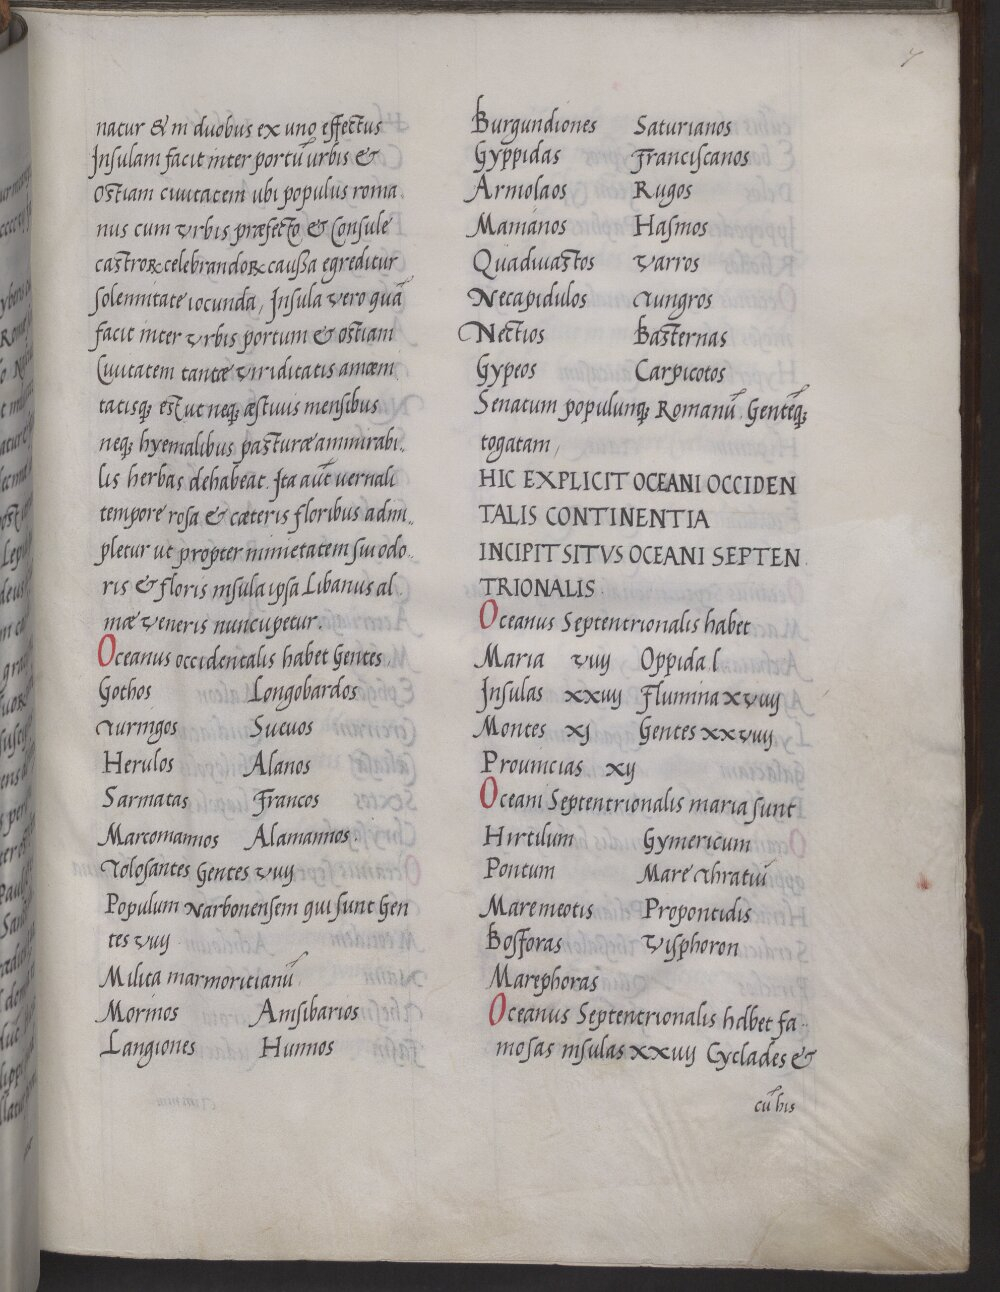 7
natur & in duobus ex uno effectus
Insulam facit inter portū urbis &
Ostiam ciuitatem ubi populus roma
nus cum vrbis præfecto & Consule
castroꝝ celebrandoꝝ caussa egreditur
solennitate iocunda, Insula vero quā
facit inter vrbis portum & ostiam
Ciuitatem tantæ viriditatis amœni
tatisq; est ut neq; æstiuis mensibus
neq; hyemalibus pasturæ ammirabi..
lis herbas dehabeat. Ita aūt uernali
tempore rosa & cæteris floribus admi..
pletur ut propter nimietatem sui odo..
ris & floris insula ipsa Libanus al.
mæ veneris nuncupetur.
Oceanus occidentalis habet Gentes
Gothos Longobardos
Turingos Sueuos
Herulos Alanos
Sarmatas Francos
Marcomannos Alamannos
Tolosantes Gentes viij
Populum Narbonensem qui sunt Gen
tes viij
Milita marmoricianū
Morinos Ansibarios
Langiones Hunnos
Burgundiones Saturianos
Gyppidas Franciscanos
Armolaos Rugos
Maniános Hasmos
Quadiuastos varros
Necapidulos Tungros
Nectios Basternas
Gypeos Carpicotos
Senatum populunq; Romanū. Gentēq;
togatam,
HIC EXPLICIT OCEANI OCCIDEN
TALIS CONTINENTIA
INCIPIT SITVS OCEANI SEPTEN
TRIONALIS.
Oceanus Septentrionalis habet
Maria viij Oppida l
Insulas xxiij Flumina xviij
Montes xj Gentes xxviij
Prouincias xij
Oceani Septentrionalis maria sunt
Hirtilum Gymericum
Pontum Mare Thratiū
Maremeotis Propontidis
Bosforas visphoron
Marephoras
Oceanus Septentrionalis habet fa..
mosas insulas xxiij Cyclades &
cū his